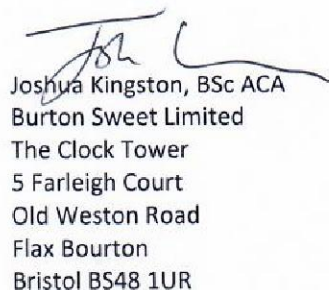 Joshua Kingston, BSc ACA
Burton Sweet Limited
The Clock Tower
5 Farleigh Court
Old Weston Road
Flax Bourton
Bristol BS48 1UR